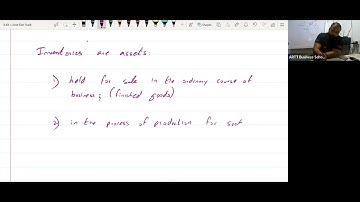 Inventories are assets:
1) held for sale in the ordinary course of
business; (finished goods)
2) in the process of production for such
ARTT Business Scho...